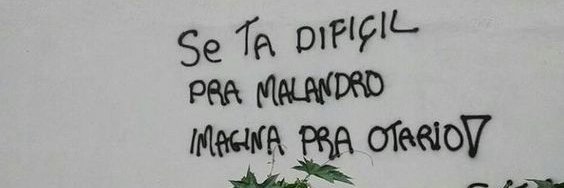 Se TA DIFIÇIL
PRA MALANDRO
IMAGINA PRA OTARIO